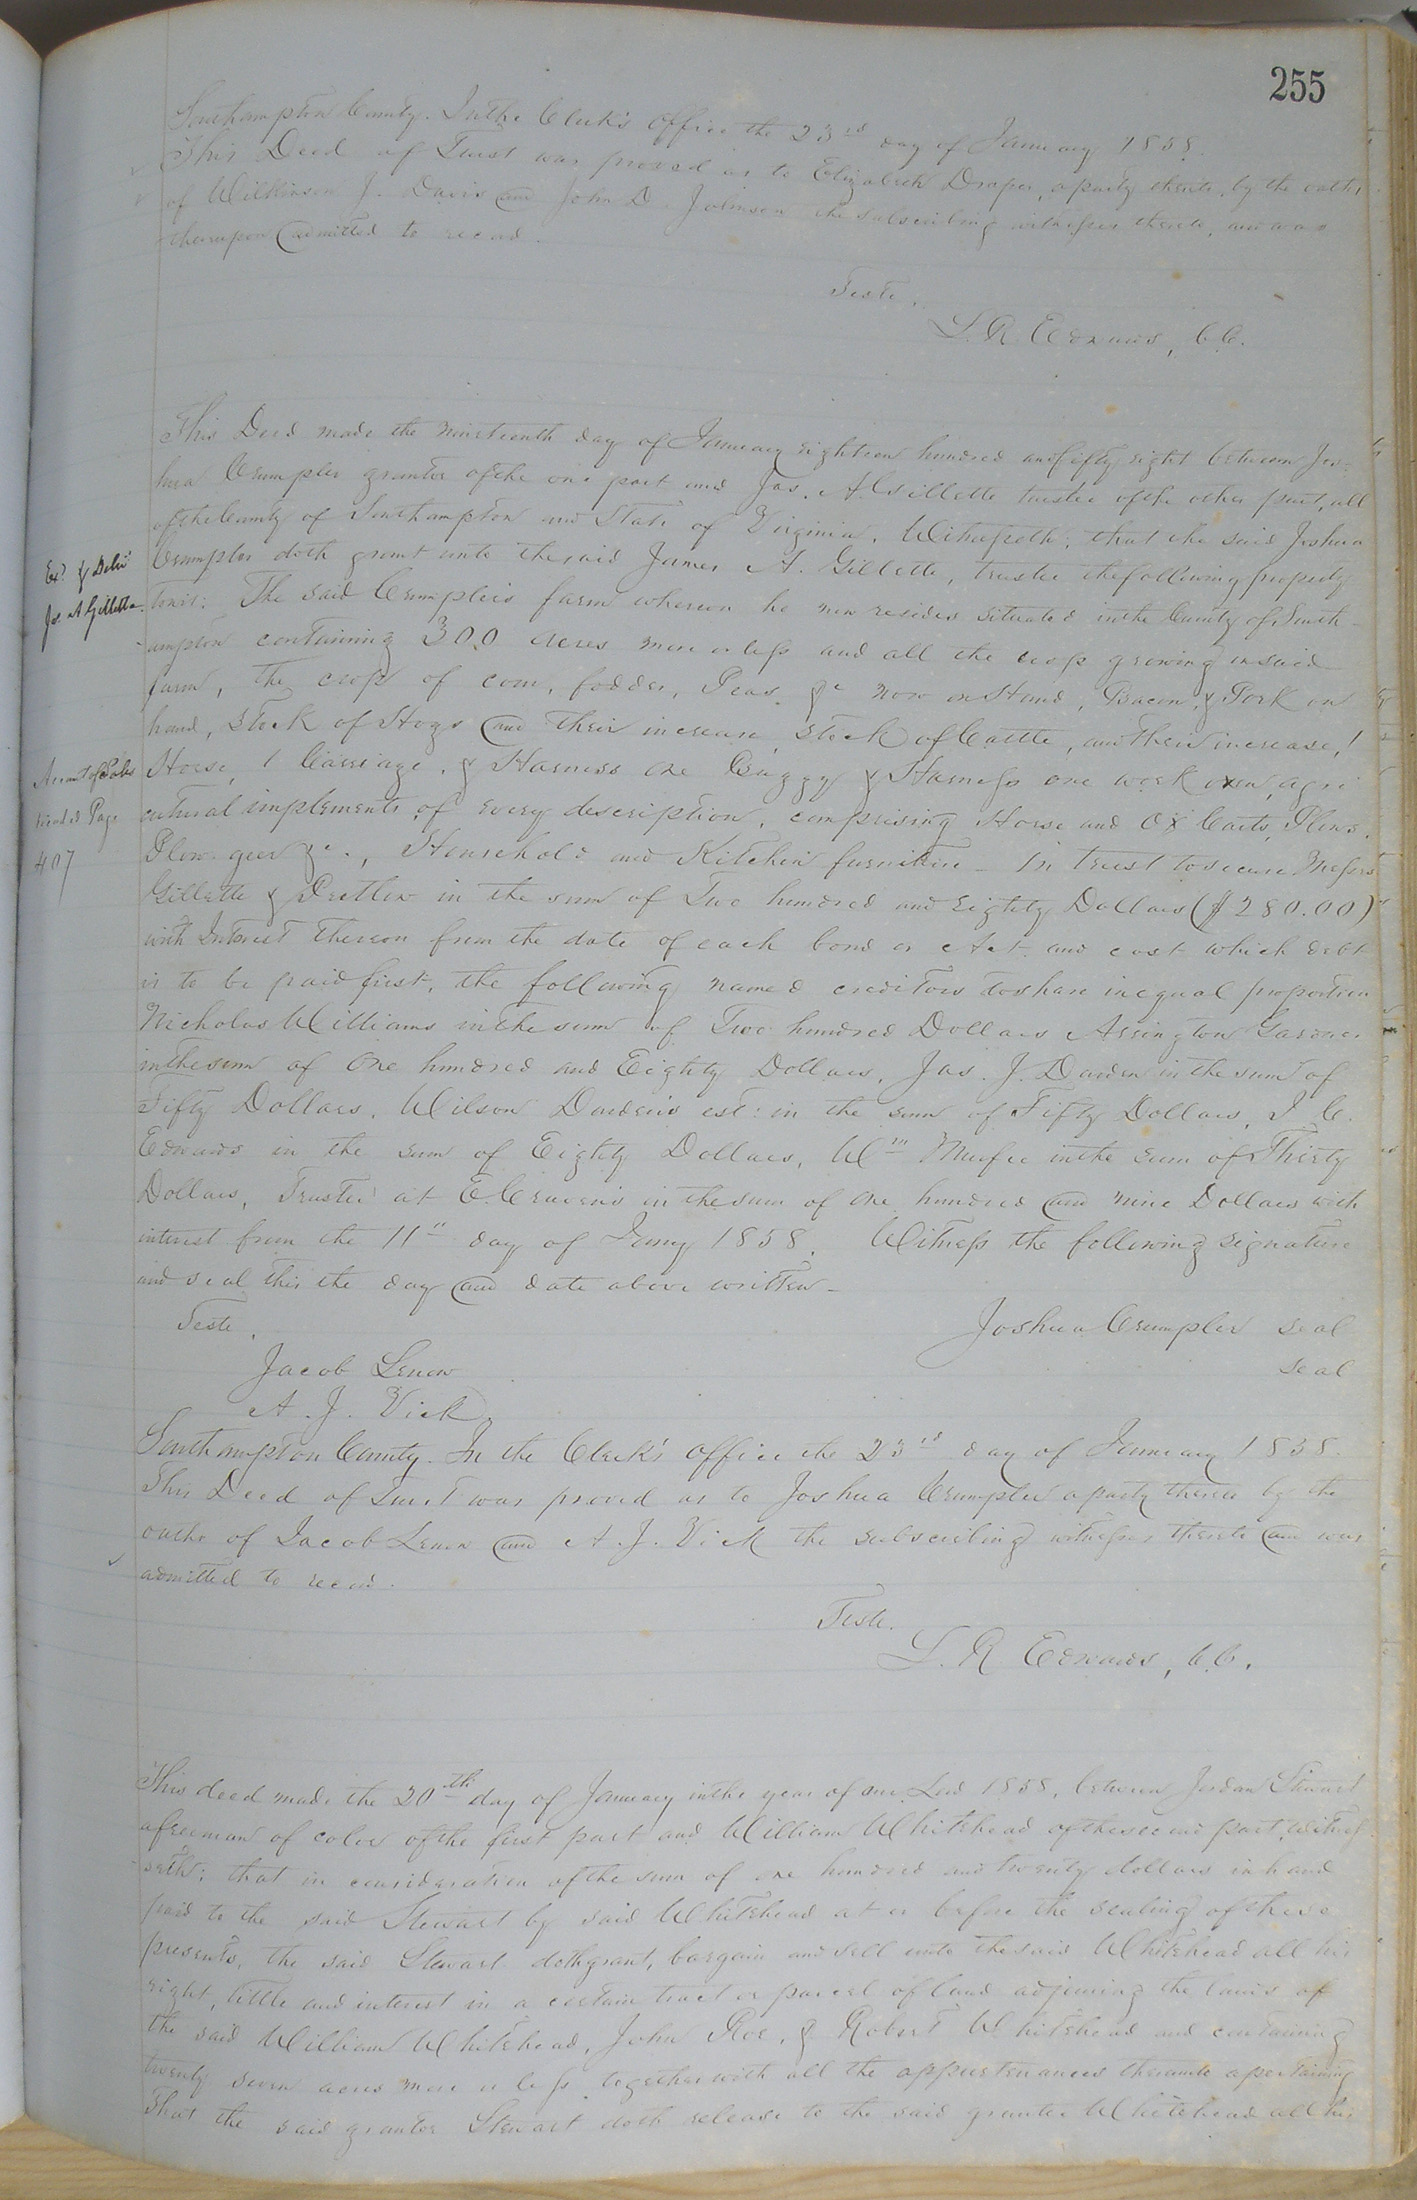 255
Southampton County. In the Clerk's Office the 23rd day of January 1858.
This Deed of Trust was proved as to Elizabeth Draper, a party thereto, by the oaths
of Wilkinson J. Davis and John D. Johnson the subscribing witnesses thereto, and was
thereupon admitted to record.
Teste,
L. R. Edwards, C.C.
This Deed made the nineteenth day of January eighteen hundred and fifty eight between Jos-
hua Crumpler grantor of the one part and Jas. A. Gillette trustee of the other part, all
of the County of Southampton and State of Virginia, Witnesseth; that the said Joshua
Crumpler doth grant unto the said James A. Gillette, trustee the following property
Exd. & Deliv
Jas. A Gillette
towit: The said Crumpler's farm whereon he now resides situated in the County of South-
ampton containing 300 acres more or less and all the crops growing on said
farm, the crop of corn, fodder, Peas, &c now on Hand, Bacon & Pork on
hand, Stock of Hogs and their increase, stock of Cattle, and their increase, 1
Horse, 1 Carriage, & Harness one Buggy & Harness one work oxen, agri
Account of Sales
recorded Page
407
cultural implements of every description, comprising Horse and Ox Carts, Plows,
Plow geer &c., Household and Kitchen furniture - In trust to secure Messrs
Gillette & in the sum of Two hundred and Eighty Dollars ($280.00)
with Interest thereon from the date of each bond or Act. and cost which debt
is to be paid first, the following named creditors to share in equal proportion
Nicholas Williams in the sum of Two hundred Dollars Arrington Gardner
in the sum of One hundred and Eighty Dollars, Jas. J. Darden in the sum of
Fifty Dollars, Wilson Darden's est: in the sum of Fifty Dollars, J. C.
Edwards in the sum of Eighty Dollars, Wm Murfee in the sum of Thirty
Dollars, Trustee at E. Craven's in the sum of One hundred and nine Dollars with
interest from the 11" day of Jany 1858. Witness the following signature
and seal this the day and date above written -
Teste, Joshua Crumpler seal
Jacob Lenow seal
A. J. Vick.
Southampton County. In the Clerk's Office the 23rd day of January 1858.
This Deed of Trust was proved as to Joshua Crumpler a party thereto by the
oaths of Jacob Lenow and A. J. Vick the subscribing witnesses thereto and was
admitted to record.
Teste.
L. R. Edwards, C.C.
This deed made the 20th day of January in the year of our Lord 1858, between Jordan Stewart
a freeman of color of the first part and William Whitehead of the second part, witnes
seth: that in consideration of the sum of one hundred and twenty dollars in hand
paid to the said Stewart by said Whitehead at or before the sealing of these
presents, the said Stewart doth grant, bargain and sell unto the said Whitehead all his
right, tittle and interest in a certain tract or parcel of land adjoining the lands of
the said William Whitehead, John Roe, & Robert Whitehead and containing
twenty seven acres more or less together with all the appurtenances thereunto apertaining
That the said grantor Stewart doth release to the said grantee Whitehead all his